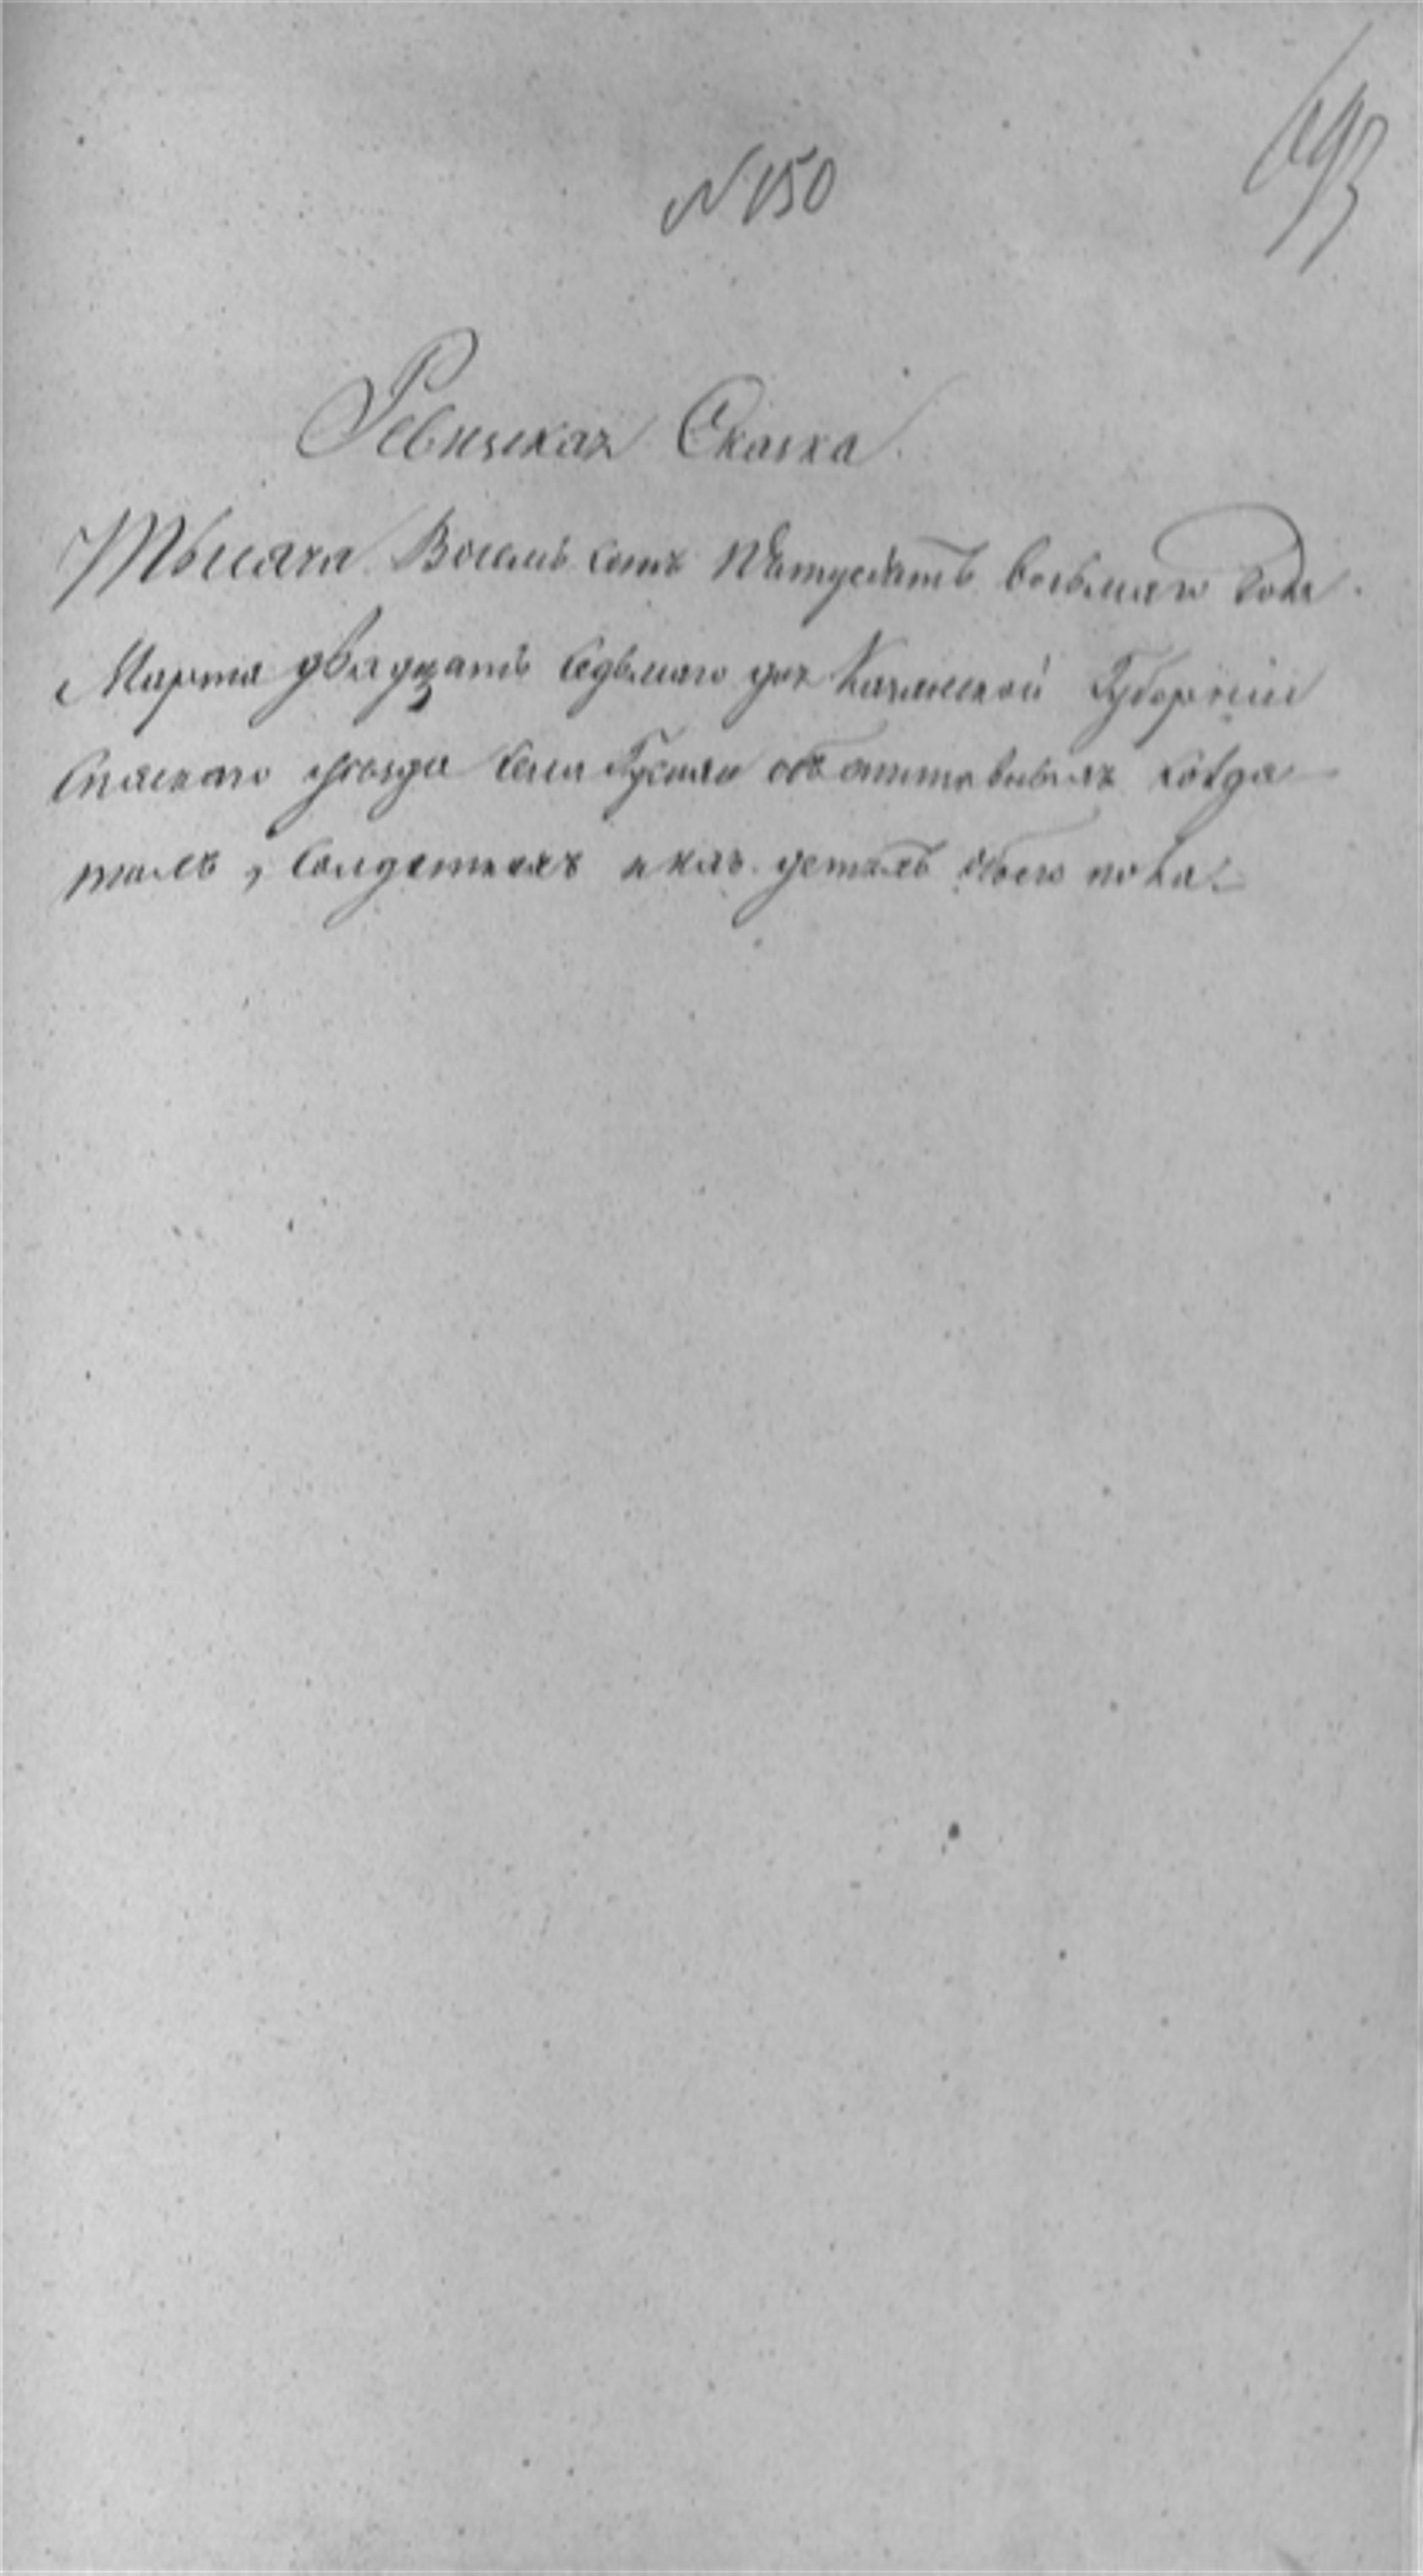 N 150
693
Ревизская Сказка.
Тысяча Восемь сотъ Пятьдесятъ восьмаго Года.
Марта двадцать седьмаго дня Казанской Губерніи
Спаскаго уезда села объ отставныхъ Солда
тахъ, Солдаткахъ и ихъ детяхъ обоего пола